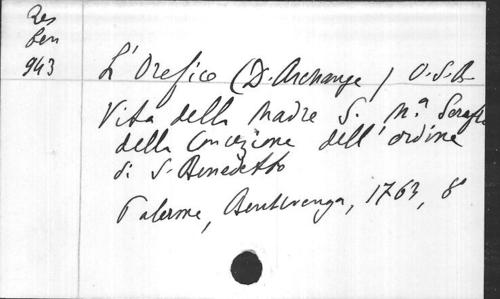 Res
Ben
943
L'Orefice (D. Archange) O.S.B.
Vita della Madre S. Mª Serafi
della Concezione dell'ordine
di S. Benedetto
Palerme, Bentivenga, 1763, 8°